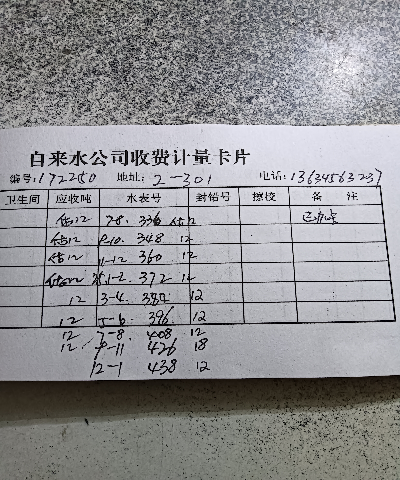 自来水公司收费计量卡片
编号:172250 地址: 2-301 电话:13634563237
卫生间 应收吨 水表号 封铅号 擦校 备 注
估12 7-8. 336 估12
估12 9-10. 348 12
估12 11-12 360 12
估12 1-2. 372 12
12 3-4. 12
12 5-6. 396 12
12 7-8. 408 12
12 9-11 426 18
12-1 438 12